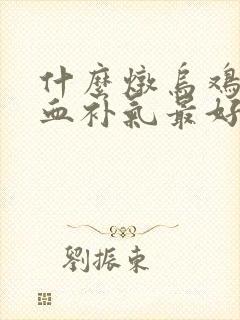 什麼燉烏鸡
血补氣最好
劉振東